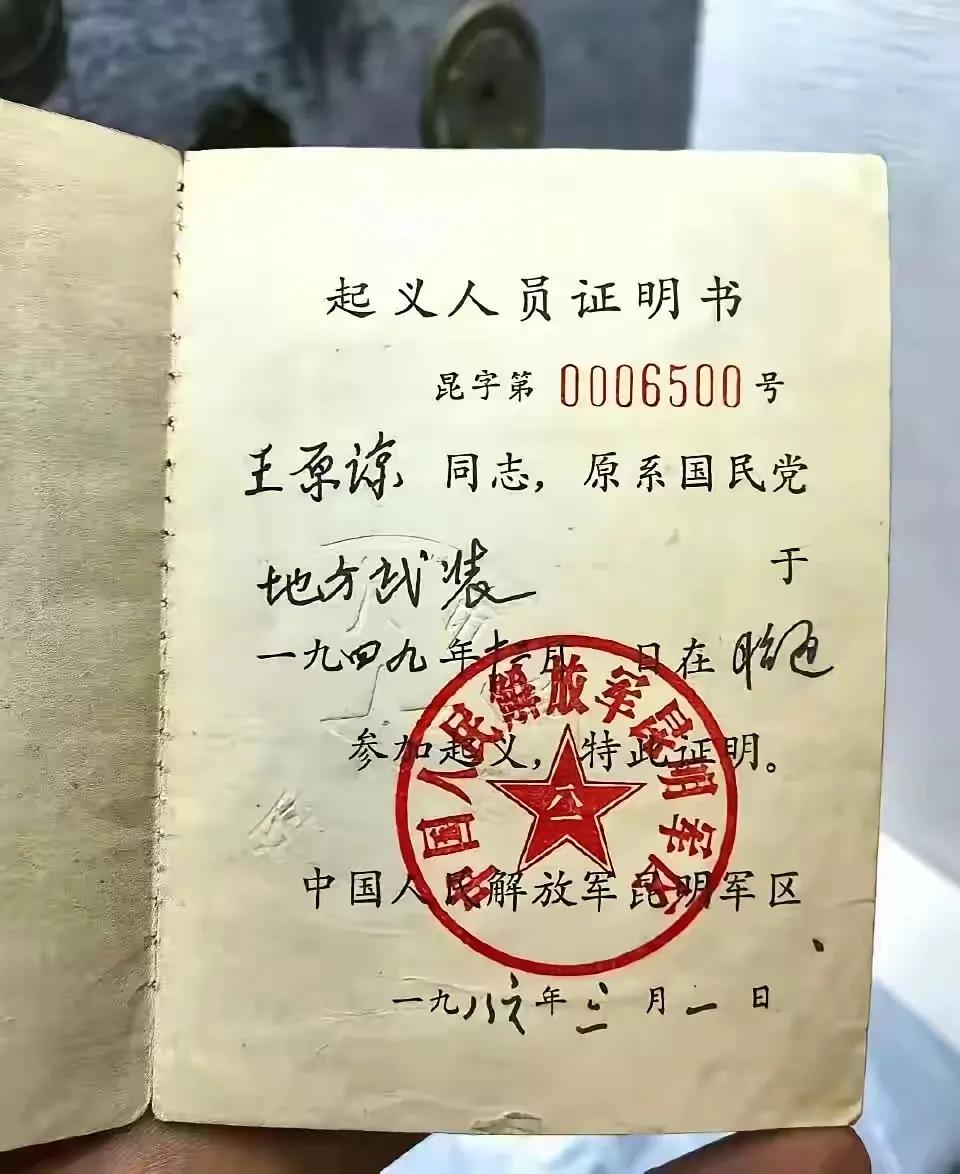 起义人员证明书
昆字第 0006500 号
王原谅 同志，原系国民党
地方武装 于
一九四九年十二月 日在昭通
参加起义，特此证明。
中国人民解放军昆明军区
中国人民解放军昆明军区
八一
一九八六年三月一日